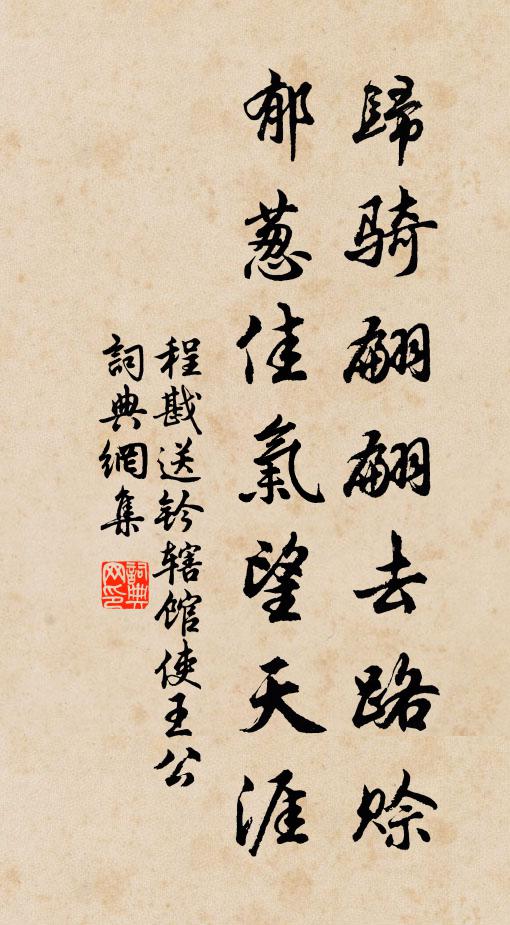 歸騎翩翩去路赊
郁葱佳氣望天涯
程戡送鈐辖館使王公
詞典網集
詞典网印